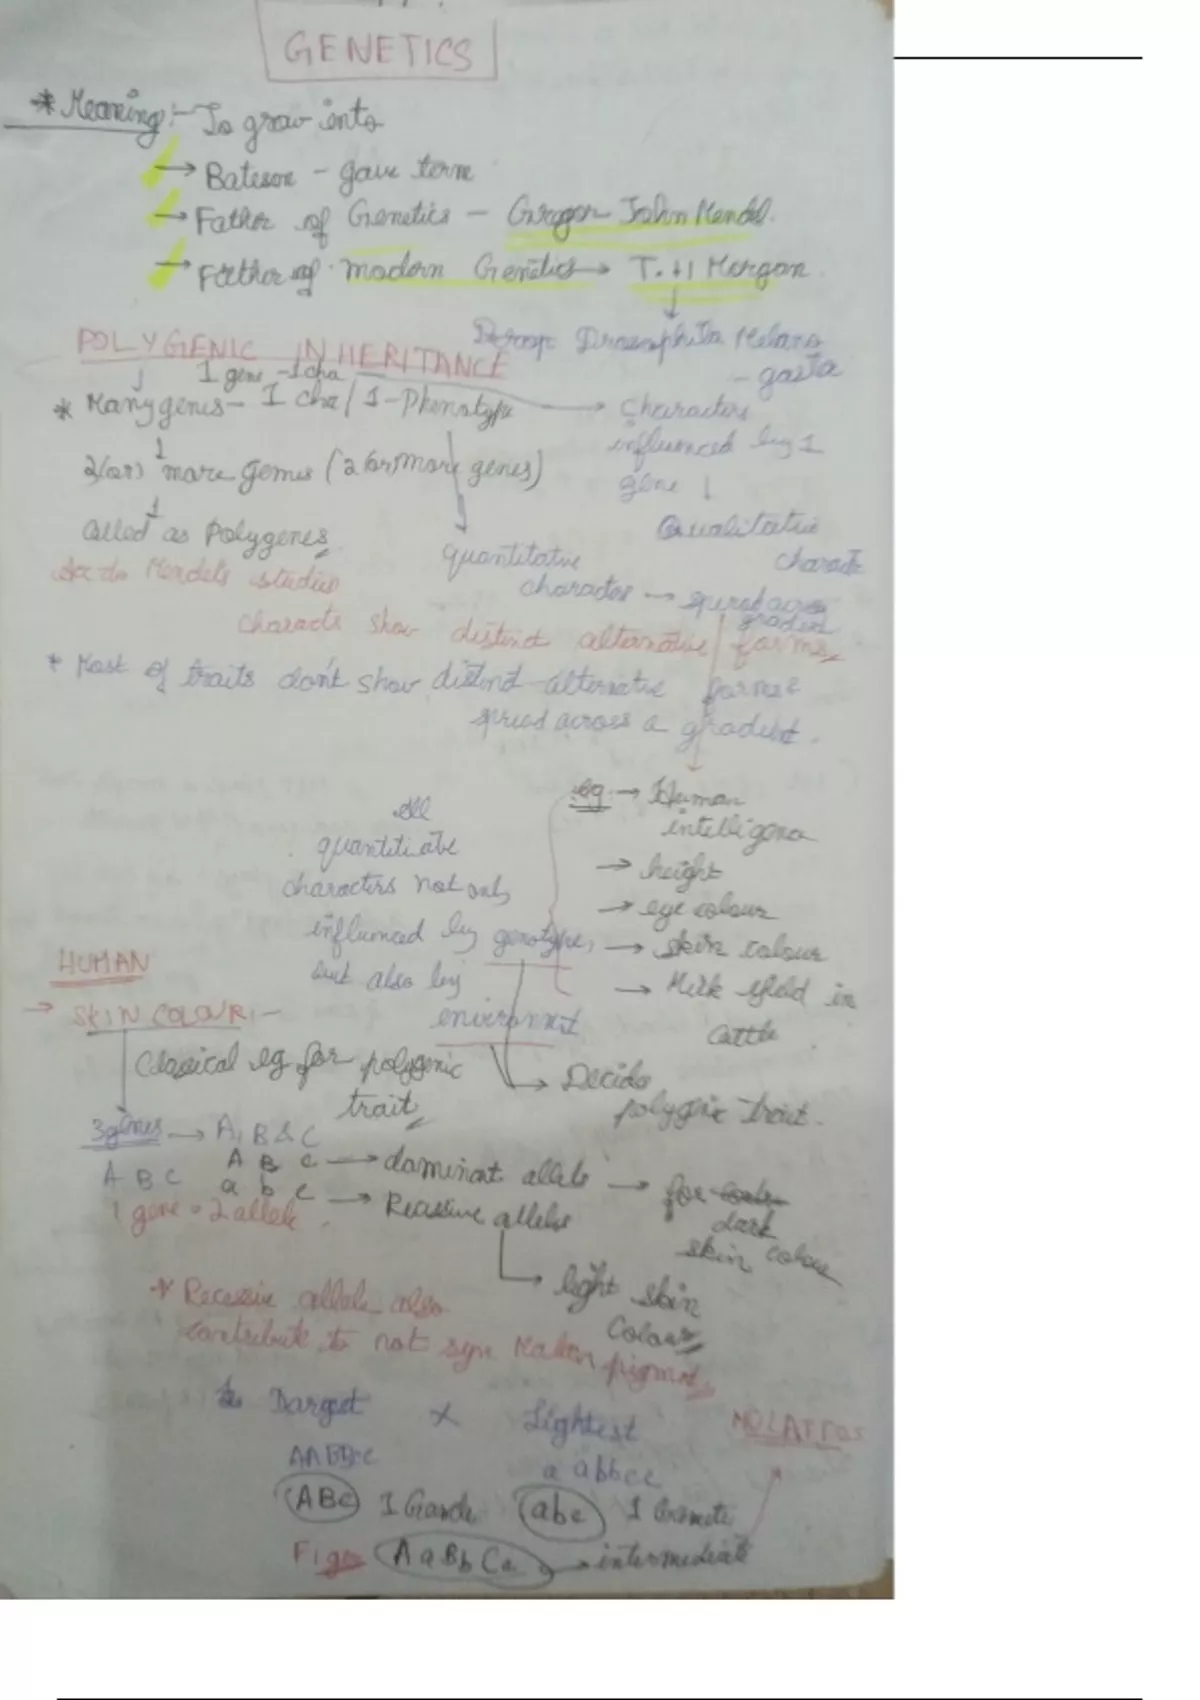 GENETICS
* Meaning :- To grow into
→ Bateson - gave term
→ Father of Genetics - Gregor John Mendel.
→ Father of modern Genetics → T. H Morgan
↓
Drosophila Melano
- gasta
POLYGENIC INHERITANCE
1 gene - 1 cha
* Many genes - 1 cha / 1 - Phenotype → characters
influenced by 1
gene ↓
Qualitative
2(or) more genes (2 (or) more genes)
called as Polygenes.
quantitative
character → spread across
gradient
Mendels studies
characts show distinct alternative forms
* Most of traits don't show distinct alternative forms &
spread across a gradient.
eg → Human
intelligence
→ height
→ eye colour
→ skin colour
→ Milk yield in
cattle
All
quantitative
characters not only
influenced by genotype,
but also by
environment
→ Decide
polygenic trait.
HUMAN
→ SKIN COLOUR :-
Classical eg for polygenic
trait
3 genes → A, B & C
A B C
A B C → dominant allele → for
dark
skin colour
a b c → Recessive alleles
→ light skin
colour
1 gene = 2 allele
* Recessive allele also
contribute to not syn pigment
Darkest × Lightest
MOLATTOS
AABBCC
aabbcc
ABC 1 Gamete abc 1 Gamete
F1 gen AaBbCc → intermediate